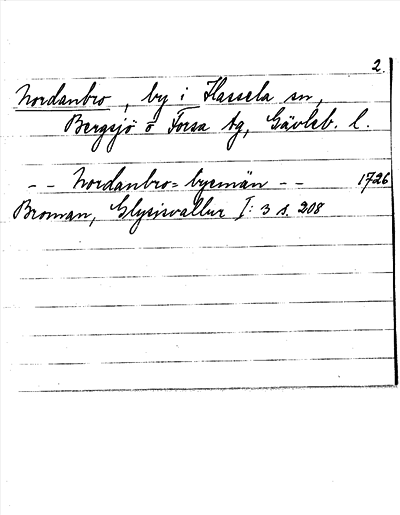 2.
Nordanbro, by i Hassela sn,
Bergsjö o Forsa tg, Gävleb. l.
-- Nordanbro=byemän -- 1726
Broman, Glysisvallur I: 3 s. 208